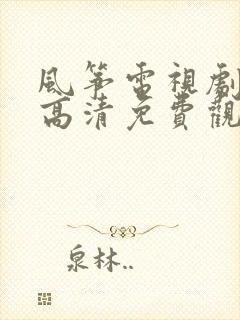 風筝電視劇
高清免費觀
泉林..